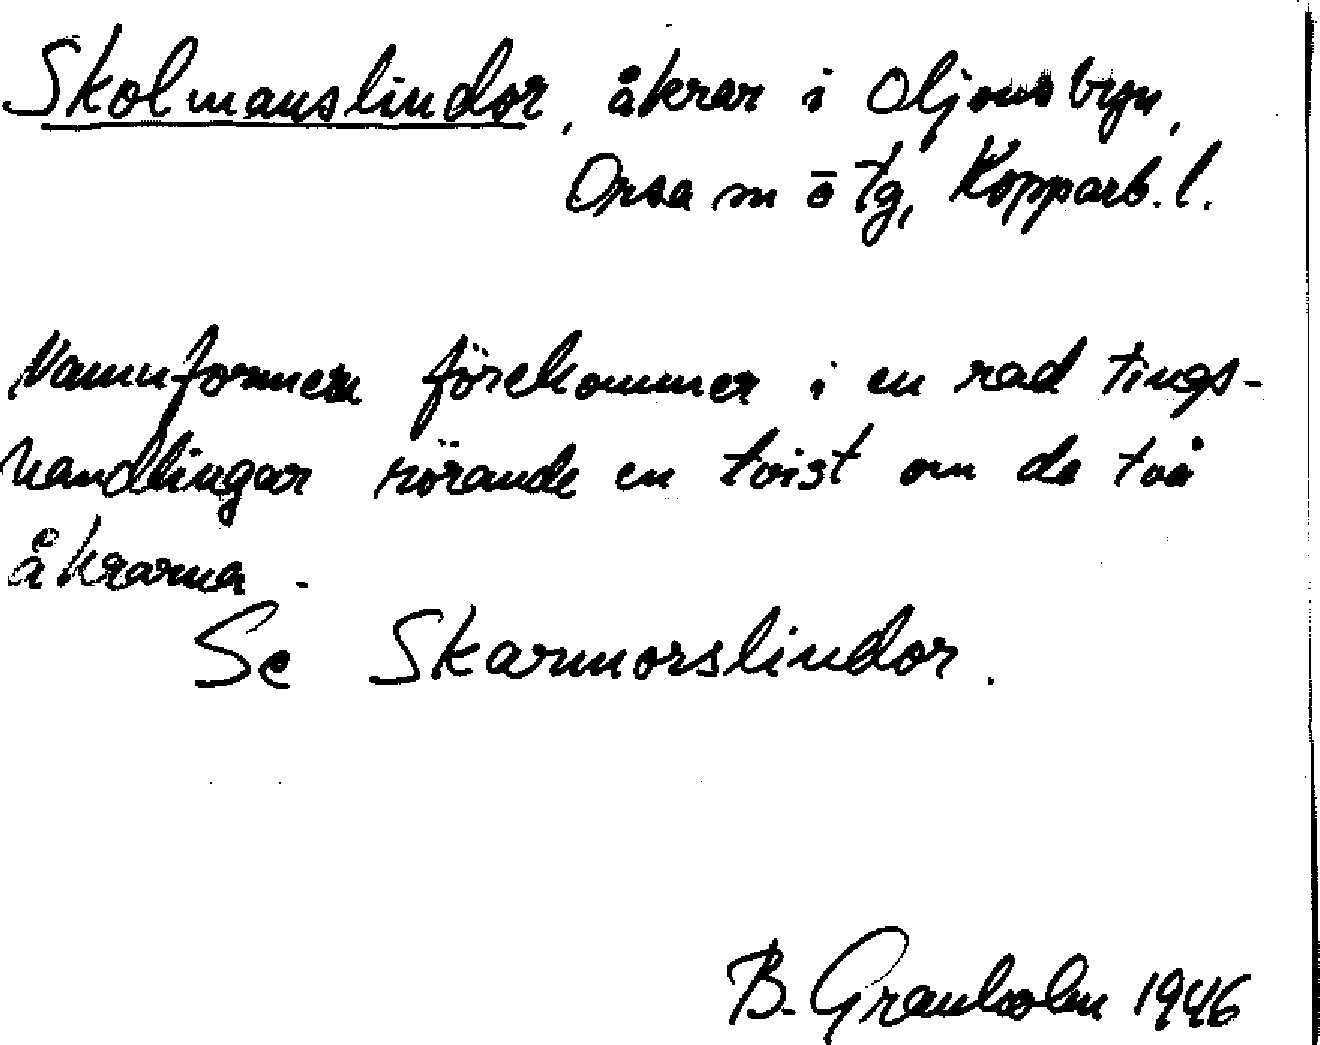 Skolmanslindor, åkrar i Oljonsbyn,
Orsa sn ö tg, Kopparb. l.
Namnformen förekommer i en rad tings-
handlingar rörande en tvist om de två
åkrarna.
Se Skarmorslindor.
B. Granholm 1946